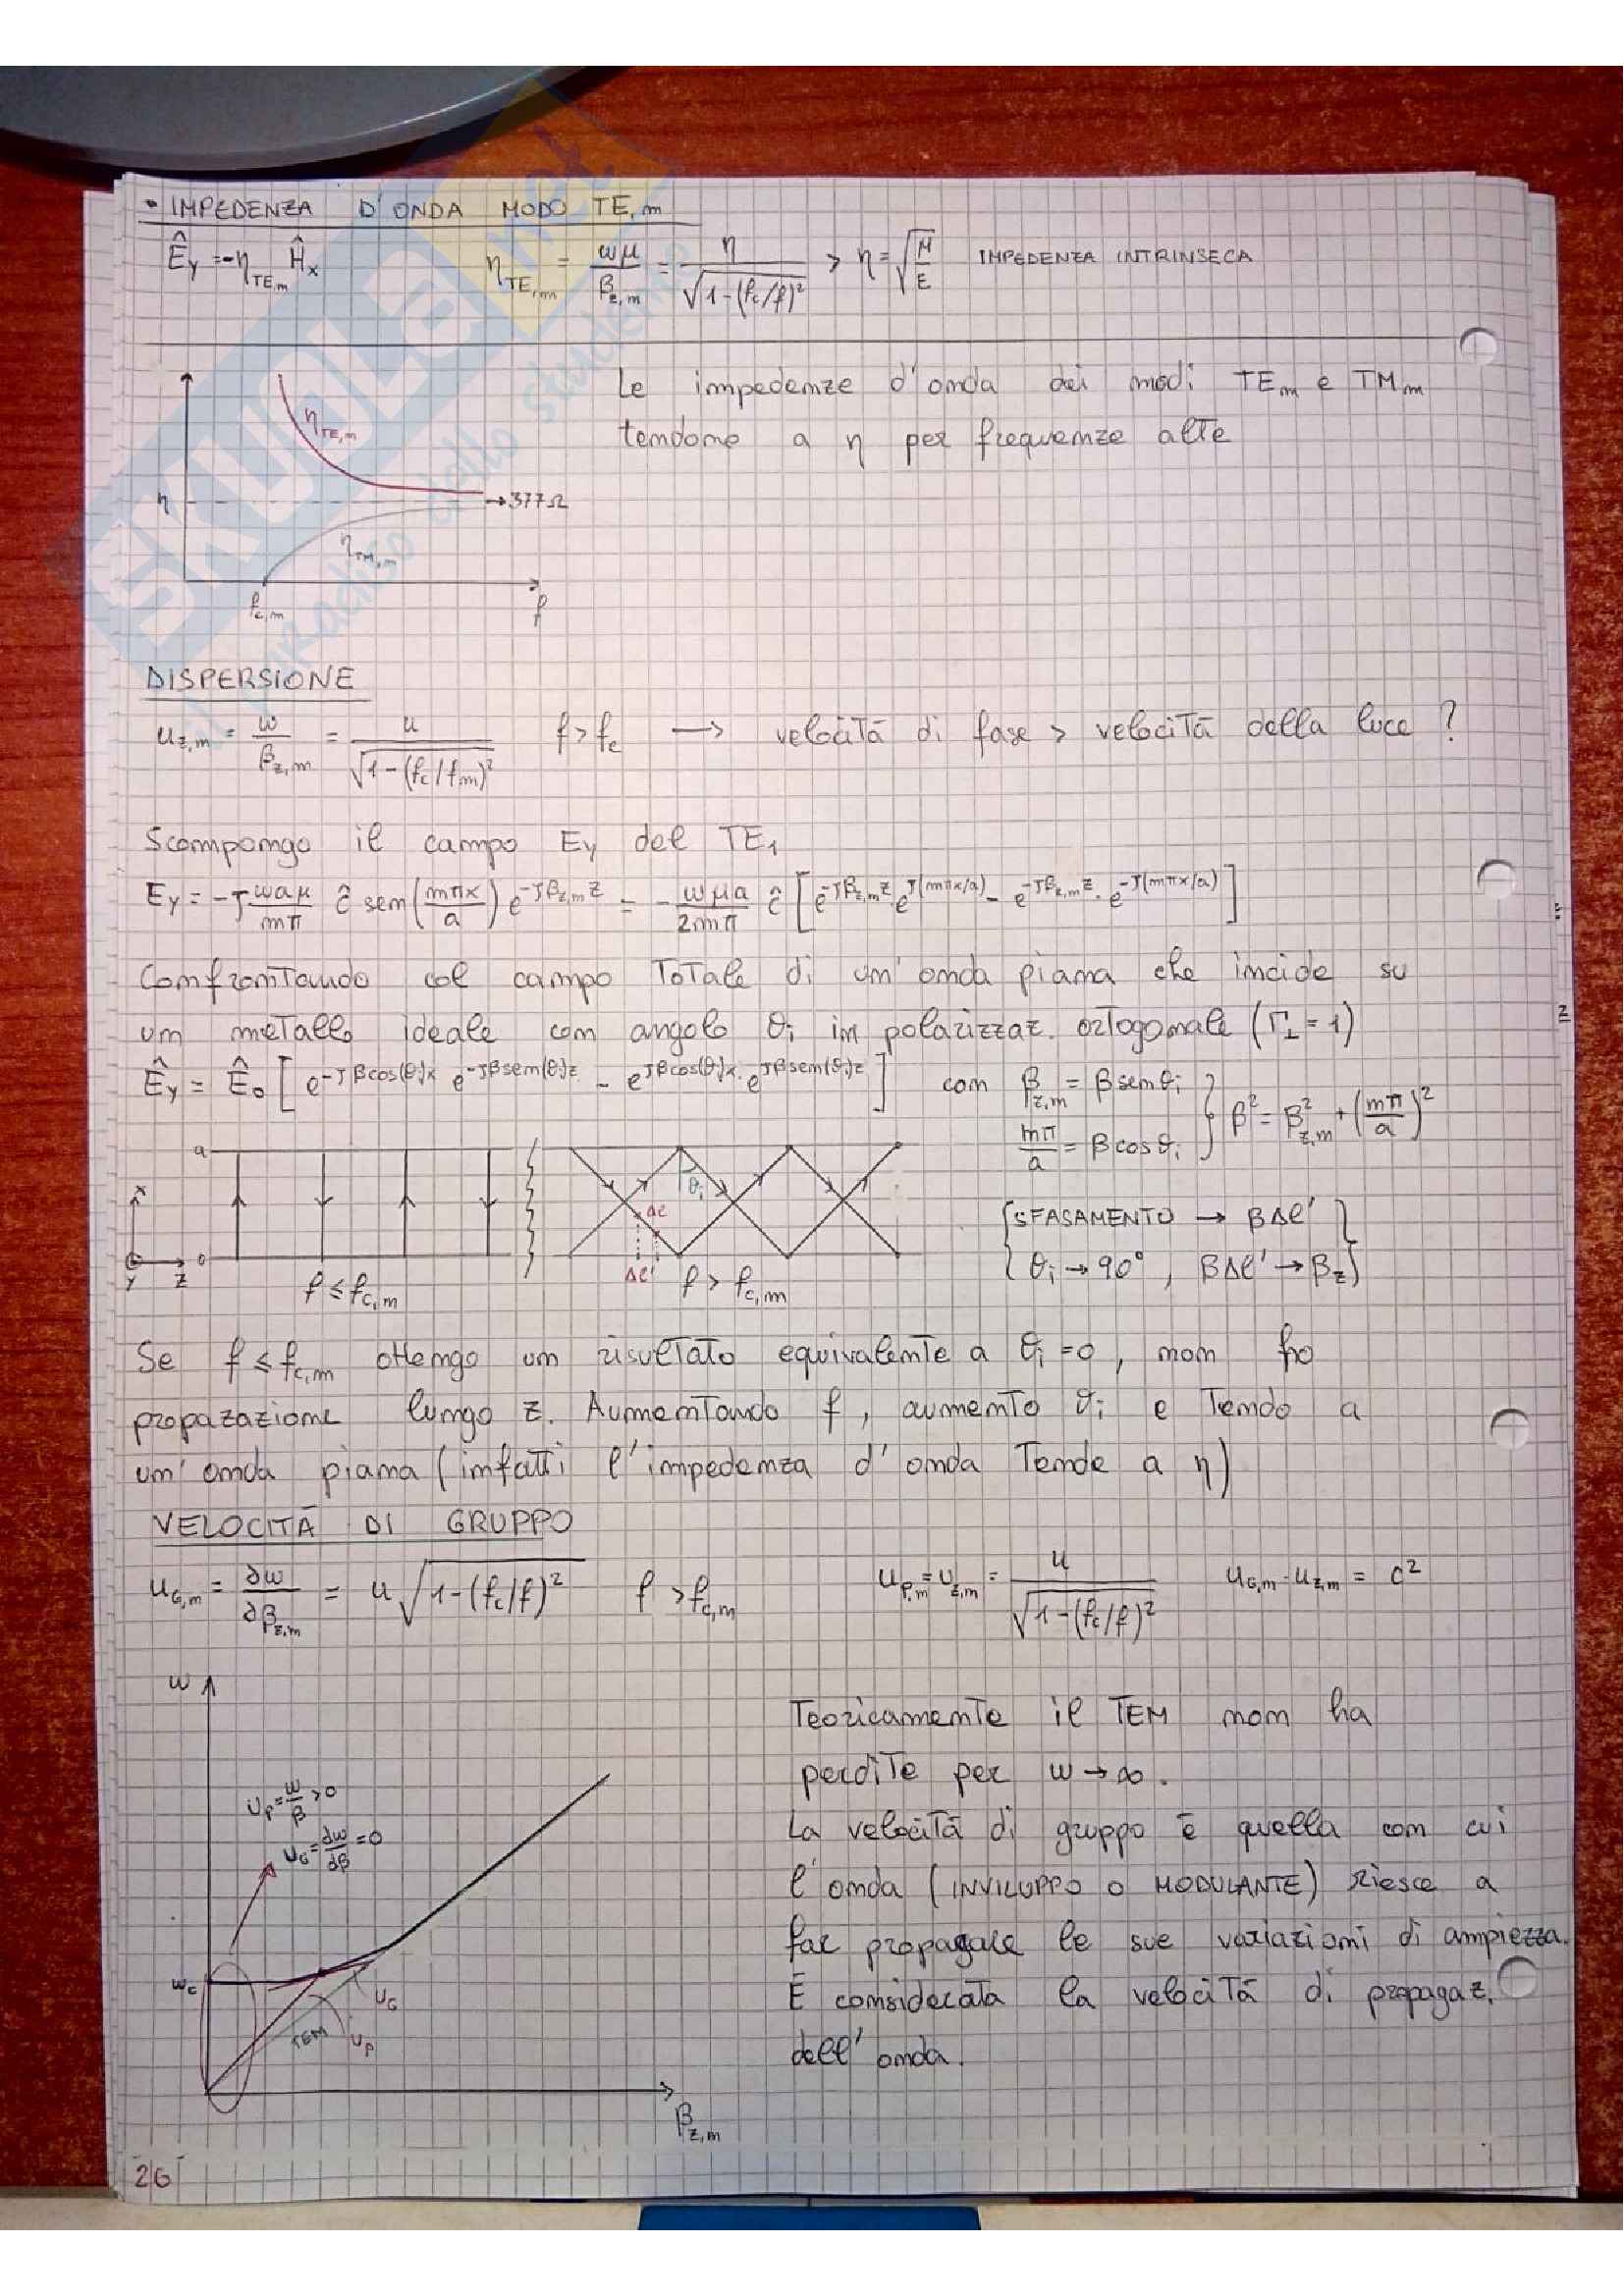 • IMPEDENZA D'ONDA MODO TE,m
Ê_y = -η_TE,m Ĥ_x   η_TE,m = ωμ/β_z,m = η/√(1-(f_c/f)²) > η = √(μ/ε)   IMPEDENZA INTRINSECA
Le impedenze d'onda dei modi TE_m e TM_m
tendono a η per frequenze alte
η_TE,m
η
→377Ω
η_TM,m
f_c,m
f
DISPERSIONE
u_z,m = ω/β_z,m = u/√(1-(f_c/f_m)²)   f>f_c → velocità di fase > velocità della luce ?
Scompongo il campo E_y del TE_1
E_y = -J ωaμ/mπ ĉ sen(mπx/a) e^(-Jβ_z,m z) = -ωμa/2mπ ĉ [e^(-Jβ_z,m z)·e^(J(mπx/a)) - e^(-Jβ_z,m z)·e^(-J(mπx/a))]
Confrontando col campo totale di un'onda piana che incide su
un metallo ideale con angolo θ_i in polarizzaz. ortogonale (Γ_⊥ = 1)
Ê_y = Ê_0 [e^(-Jβcos(θ_i)x) e^(-Jβsen(θ_i)z) - e^(Jβcos(θ_i)x)·e^(Jβsen(θ_i)z)]   con β_z,m = β sen θ_i
mπ/a = β cos θ_i } β² = β²_z,m + (mπ/a)²
a
x
y
z
0
f ≤ f_c,m
θ_i
Δl
Δl'
f > f_c,m
{SFASAMENTO → βΔl'
θ_i → 90°, βΔl' → β_z}
Se f ≤ f_c,m ottengo un risultato equivalente a θ_i = 0, non ho
propazazione lungo z. Aumentando f, aumento θ_i e tendo a
un'onda piana (infatti l'impedenza d'onda tende a η)
VELOCITÀ DI GRUPPO
u_G,m = ∂ω/∂β_z,m = u√(1-(f_c/f)²)   f > f_c,m   u_P,m = u_z,m = u/√(1-(f_c/f)²)   u_G,m · u_z,m = c²
ω
u_P = ω/β > 0
u_G = ∂ω/∂β = 0
ω_c
u_G
TEM
u_P
β_z,m
Teoricamente il TEM non ha
perdite per ω → ∞.
La velocità di gruppo è quella con cui
l'onda (INVILUPPO O MODULANTE) riesce a
far propagare le sue variazioni di ampiezza.
È considerata la velocità di propagaz.
dell'onda.
26
SKUOLA.net
il paradiso dello studente
z